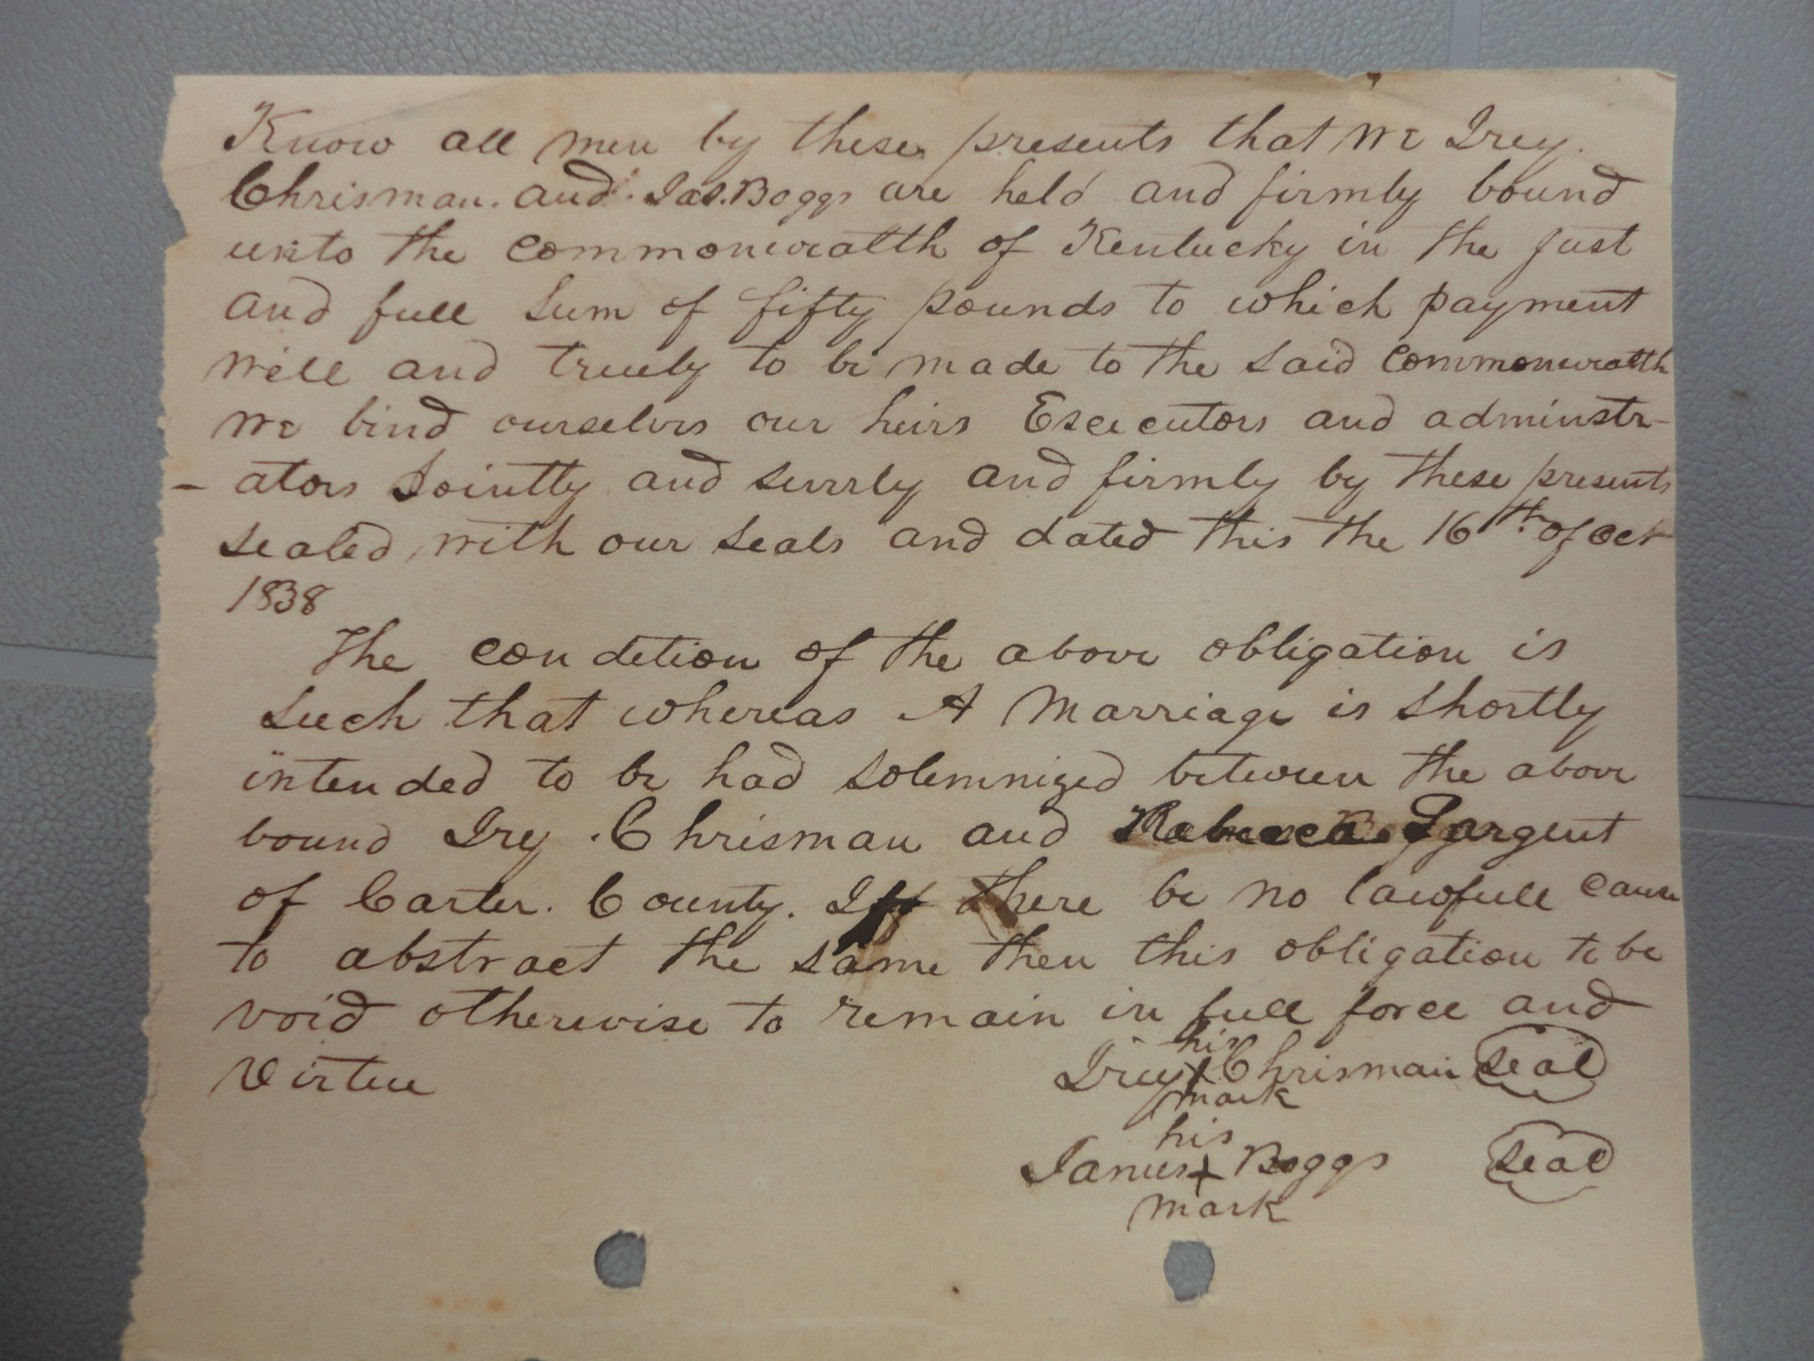 Know all men by these presents that we Irey
Chrisman. and Jas. Boggs are held and firmly bound
unto the commonwealth of Kentucky in the just
and full sum of fifty pounds to which payment
well and truely to be made to the said commonwealth
we bind ourselves our heirs Executors and adminstr-
- ators Jointly and surrly and firmly by these presents
sealed with our seals and dated this the 16th of Oct
1838
The condetion of the above obligation is
such that whereas A Marriage is shortly
intended to be had solemnized between the above
bound Irey Chrisman and Rebecca Sargent
of Carter. County. If there be no lawfull cause
to abstract the same then this obligation to be
void otherwise to remain in full force and
virtue
his
Irey X Chrisman seal
mark
his
James + Boggs seal
mark